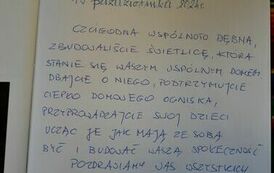 października
CZCIGODNA WSPÓLNOTO DĘBNA,
ZBUDOWALIŚCIE ŚWIETLICĘ, KTÓRA
STANIE SIĘ WASZYM WSPÓLNYM DOMEM
DBAJCIE O NIEGO, PODTRZYMUJCIE
CIEPŁO DOMOWEGO OGNISKA,
PRZYPROWADZAJCIE SWOJE DZIECI
UCZĄC JE JAK MAJĄ ZE SOBĄ
BYĆ I BUDOWAĆ WASZĄ SPOŁECZNOŚĆ
POZDRAWIAMY WAS WSZYSTKICH